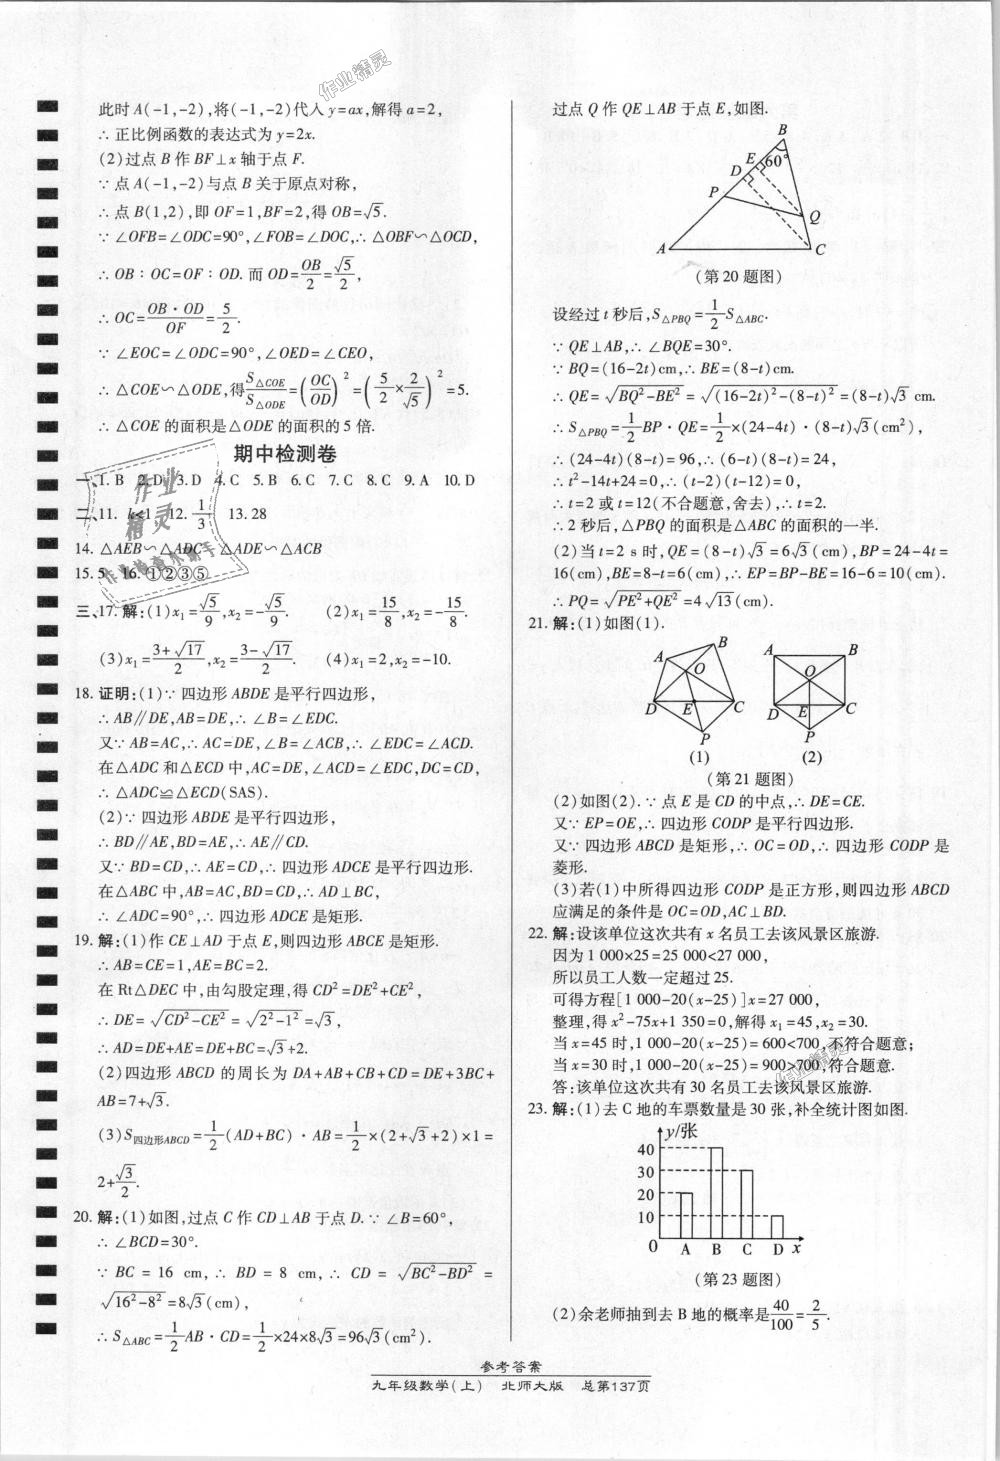 此时 A(-1,-2),将(-1,-2)代入 y=ax,解得 a=2,
∴ 正比例函数的表达式为 y=2x.
(2)过点 B 作 BF⊥x 轴于点 F.
∵ 点 A(-1,-2)与点 B 关于原点对称,
∴ 点 B(1,2),即 OF=1,BF=2,得 OB=√5.
∵ ∠OFB=∠ODC=90°,∠FOB=∠DOC,∴ △OBF∽△OCD,
∴ OB∶OC=OF∶OD. 而 OD=OB/2=√5/2,
∴ OC=OB·OD/OF=5/2.
∵ ∠EOC=∠ODC=90°,∠OED=∠CEO,
∴ △COE∽△ODE,得S△COE/S△ODE=(OC/OD)²=(5/2×2/√5)²=5.
∴ △COE 的面积是△ODE 的面积的 5 倍.
期中检测卷
一、1. B 2. D 3. D 4. C 5. B 6. C 7. C 8. C 9. A 10. D
二、11. k<1 12. 1/3 13. 28
14. △AEB∽△ADC △ADE∽△ACB
15. 5 16. ①②③⑤
三、17. 解:(1)x₁=√5/9,x₂=-√5/9. (2)x₁=15/8,x₂=-15/8.
(3)x₁=(3+√17)/2,x₂=(3-√17)/2. (4)x₁=2,x₂=-10.
18. 证明:(1)∵ 四边形 ABDE 是平行四边形,
∴ AB∥DE,AB=DE,∴ ∠B=∠EDC.
又∵ AB=AC,∴ AC=DE,∠B=∠ACB,∴ ∠EDC=∠ACD.
在△ADC 和△ECD 中,AC=DE,∠ACD=∠EDC,DC=CD,
∴ △ADC≌△ECD(SAS).
(2)∵ 四边形 ABDE 是平行四边形,
∴ BD∥AE,BD=AE,∴ AE∥CD.
又∵ BD=CD,∴ AE=CD,∴ 四边形 ADCE 是平行四边形.
在△ABC 中,AB=AC,BD=CD,∴ AD⊥BC,
∴ ∠ADC=90°,∴ 四边形 ADCE 是矩形.
19. 解:(1)作 CE⊥AD 于点 E,则四边形 ABCE 是矩形.
∴ AB=CE=1,AE=BC=2.
在 Rt△DEC 中,由勾股定理,得 CD²=DE²+CE²,
∴ DE=√(CD²-CE²)=√(2²-1²)=√3,
∴ AD=DE+AE=DE+BC=√3+2.
(2)四边形 ABCD 的周长为 DA+AB+CB+CD=DE+3BC+
AB=7+√3.
(3)S四边形ABCD=1/2(AD+BC)·AB=1/2×(2+√3+2)×1=
2+√3/2.
20. 解:(1)如图,过点 C 作 CD⊥AB 于点 D. ∵ ∠B=60°,
∴ ∠BCD=30°.
∵ BC=16 cm,∴ BD=8 cm,∴ CD=√(BC²-BD²)=
√(16²-8²)=8√3(cm),
∴ S△ABC=1/2AB·CD=1/2×24×8√3=96√3(cm²).
过点 Q 作 QE⊥AB 于点 E,如图.
B
E
60°
D
P
Q
A
C
(第 20 题图)
设经过 t 秒后,S△PBQ=1/2S△ABC.
∵ QE⊥AB,∴ ∠BQE=30°.
∵ BQ=(16-2t)cm,∴ BE=(8-t)cm.
∴ QE=√(BQ²-BE²)=√((16-2t)²-(8-t)²)=(8-t)√3 cm.
∴ S△PBQ=1/2BP·QE=1/2×(24-4t)·(8-t)√3(cm²),
∴ (24-4t)(8-t)=96,∴ (6-t)(8-t)=24,
∴ t²-14t+24=0,∴ (t-2)(t-12)=0,
∴ t=2 或 t=12(不合题意,舍去),∴ t=2.
∴ 2 秒后,△PBQ 的面积是△ABC 的面积的一半.
(2)当 t=2 s 时,QE=(8-t)√3=6√3(cm),BP=24-4t=
16(cm),BE=8-t=6(cm),∴ EP=BP-BE=16-6=10(cm).
∴ PQ=√(PE²+QE²)=4√13(cm).
21. 解:(1)如图(1).
A B O D E C P
A B O D E C P
(1) (2)
(第 21 题图)
(2)如图(2). ∵ 点 E 是 CD 的中点,∴ DE=CE.
又∵ EP=OE,∴ 四边形 CODP 是平行四边形.
又∵ 四边形 ABCD 是矩形,∴ OC=OD,∴ 四边形 CODP 是
菱形.
(3)若(1)中所得四边形 CODP 是正方形,则四边形 ABCD
应满足的条件是 OC=OD,AC⊥BD.
22. 解:设该单位这次共有 x 名员工去该风景区旅游.
因为 1 000×25=25 000<27 000,
所以员工人数一定超过 25.
可得方程[1 000-20(x-25)]x=27 000,
整理,得 x²-75x+1 350=0,解得 x₁=45,x₂=30.
当 x=45 时,1 000-20(x-25)=600<700,不符合题意;
当 x=30 时,1 000-20(x-25)=900>700,符合题意.
答:该单位这次共有 30 名员工去该风景区旅游.
23. 解:(1)去 C 地的车票数量是 30 张,补全统计图如图.
y/张
40
30
20
10
0 A B C D x
(第 23 题图)
(2)余老师抽到去 B 地的概率是40/100=2/5.
参考答案
九年级数学(上) 北师大版 总第137页
作业精灵
作业精灵
作业精灵